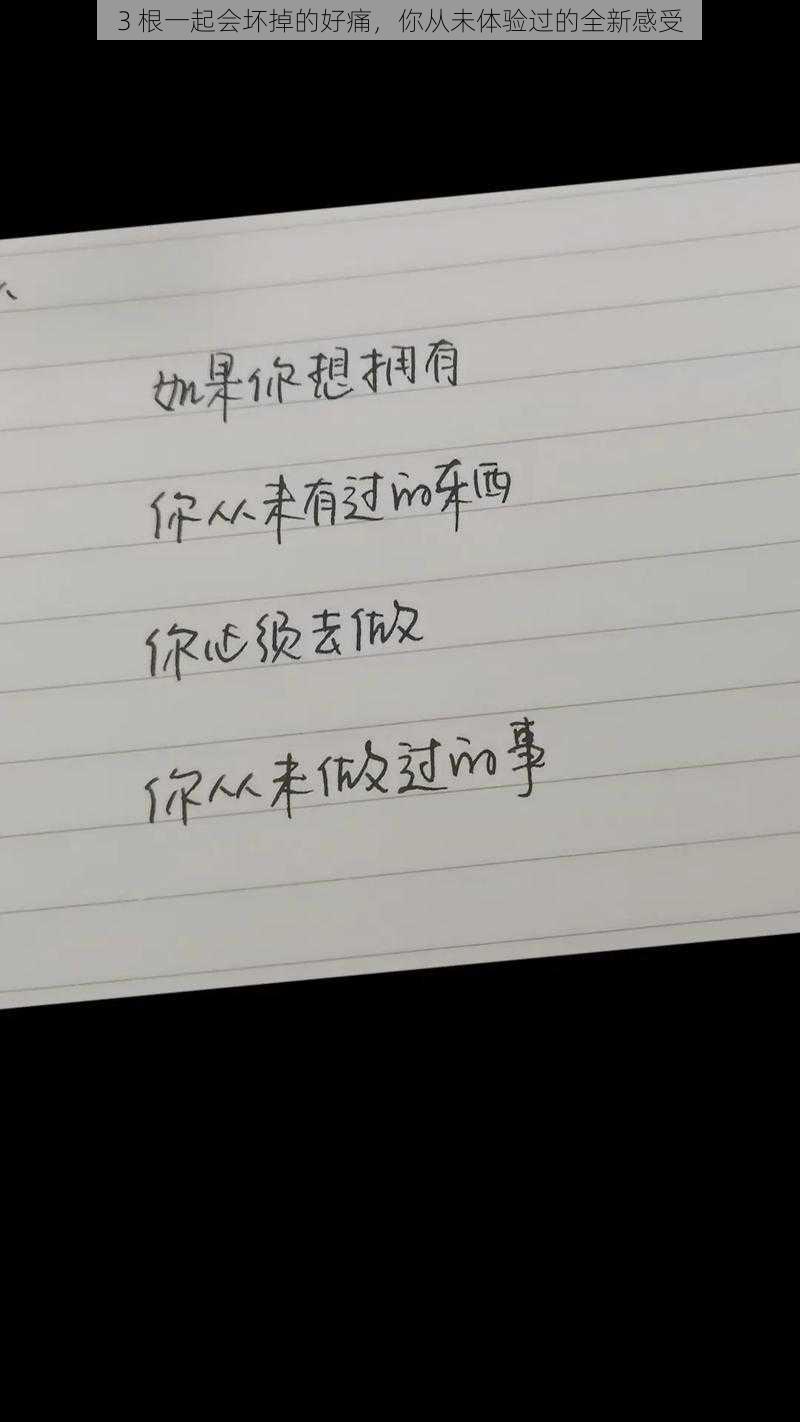 3 根一起会坏掉的好痛，你从未体验过的全新感受
如果你想拥有
你从未有过的东西
你必须去做
你从未做过的事